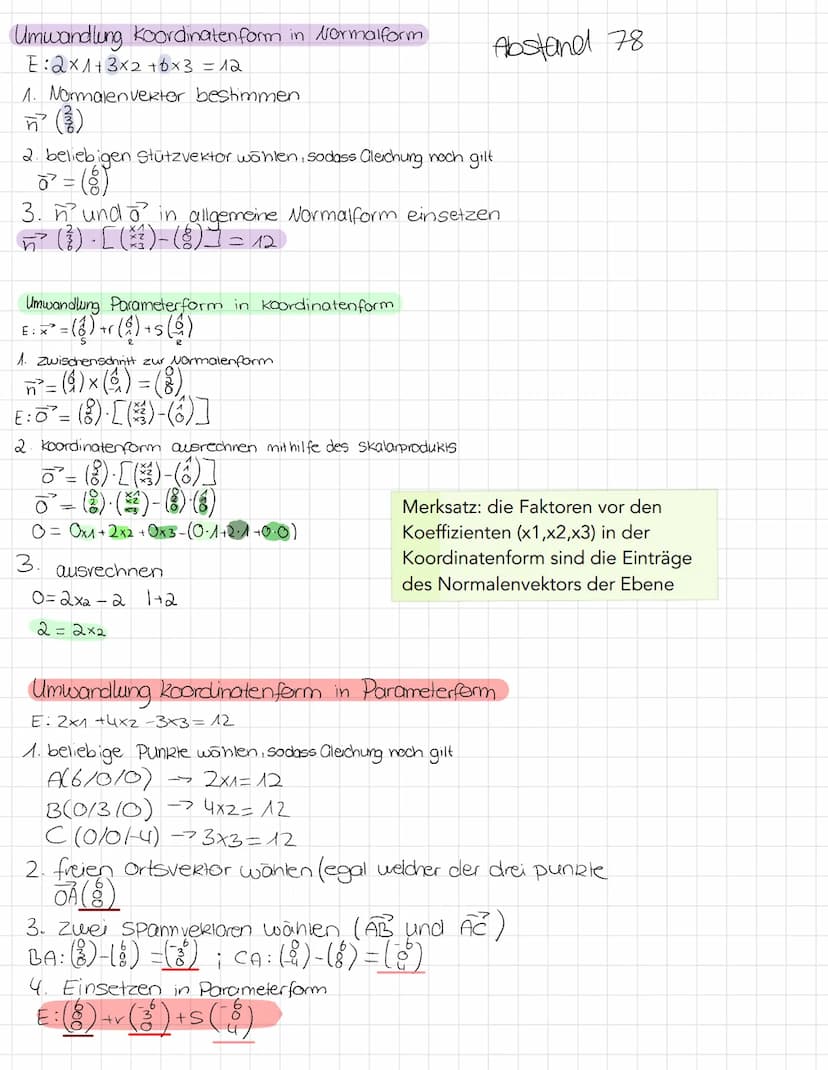 Umwandlung Koordinatenform in Normalform
Abstand 78
E: 2x1+3x2+6x3 = 12
1. Normalenvektor bestimmen
n→ (2 3 6)
2. beliebigen Stützvektor wählen, sodass Gleichung noch gilt
o→ = (6 0 0)
3. n→ und o→ in allgemeine Normalform einsetzen
n→ (2 3 6) · [(x1 x2 x3) - (6 0 0)] = 12
Umwandlung Parameterform in Koordinatenform
1. Zwischenschritt zur Normalenform
2. Koordinatenform ausrechnen mithilfe des Skalarprodukts
0 = 0x1 + 2x2 + 0x3 - (0·1+2·1+0·0)
Merksatz: die Faktoren vor den
Koeffizienten (x1,x2,x3) in der
Koordinatenform sind die Einträge
des Normalenvektors der Ebene
3. ausrechnen
0=2x2 - 2 |+2
2 = 2x2
Umwandlung Koordinatenform in Parameterform
E: 2x1 +4x2 -3x3 = 12
1. beliebige Punkte wählen, sodass Gleichung noch gilt
A(6/0/0) → 2x1= 12
B(0/3/0) → 4x2= 12
C (0/0/-4) → 3x3 = 12
2. freien Ortsvektor wählen (egal welcher der drei punkte
OA→ (6 0 0)
3. Zwei Spannvektoren wählen (AB→ und AC→)
4. Einsetzen in Parameterform